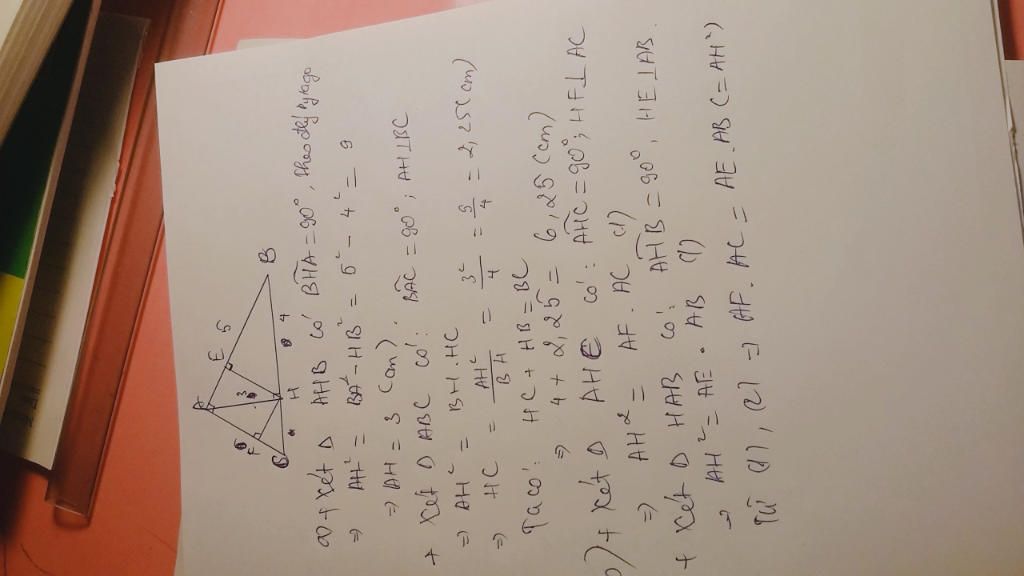 A
E
5
B
F
6
3
4
C
H
a) + Xét Δ AHB có BHA = 90°, theo định lý pytago
=> AH² = BA² - HB² = 5² - 4² = 9
=> AH = 3 (cm)
+ Xét Δ ABC có: BAC = 90°; AH⊥BC
=> AH² = BH.HC
=> HC = AH²/BH = 3²/4 = 9/4 = 2,25 (cm)
Ta có: HC + HB = BC
=> 4 + 2,25 = 6,25 (cm)
b) + Xét Δ AHC có: AHC = 90°; HF⊥AC
=> AH² = AF. AC (1)
+ Xét Δ HAB có: AHB = 90°, HE⊥AB.
=> AH² = AE. AB (1)
Từ (1), (2) => AF. AC = AE. AB (=AH²)